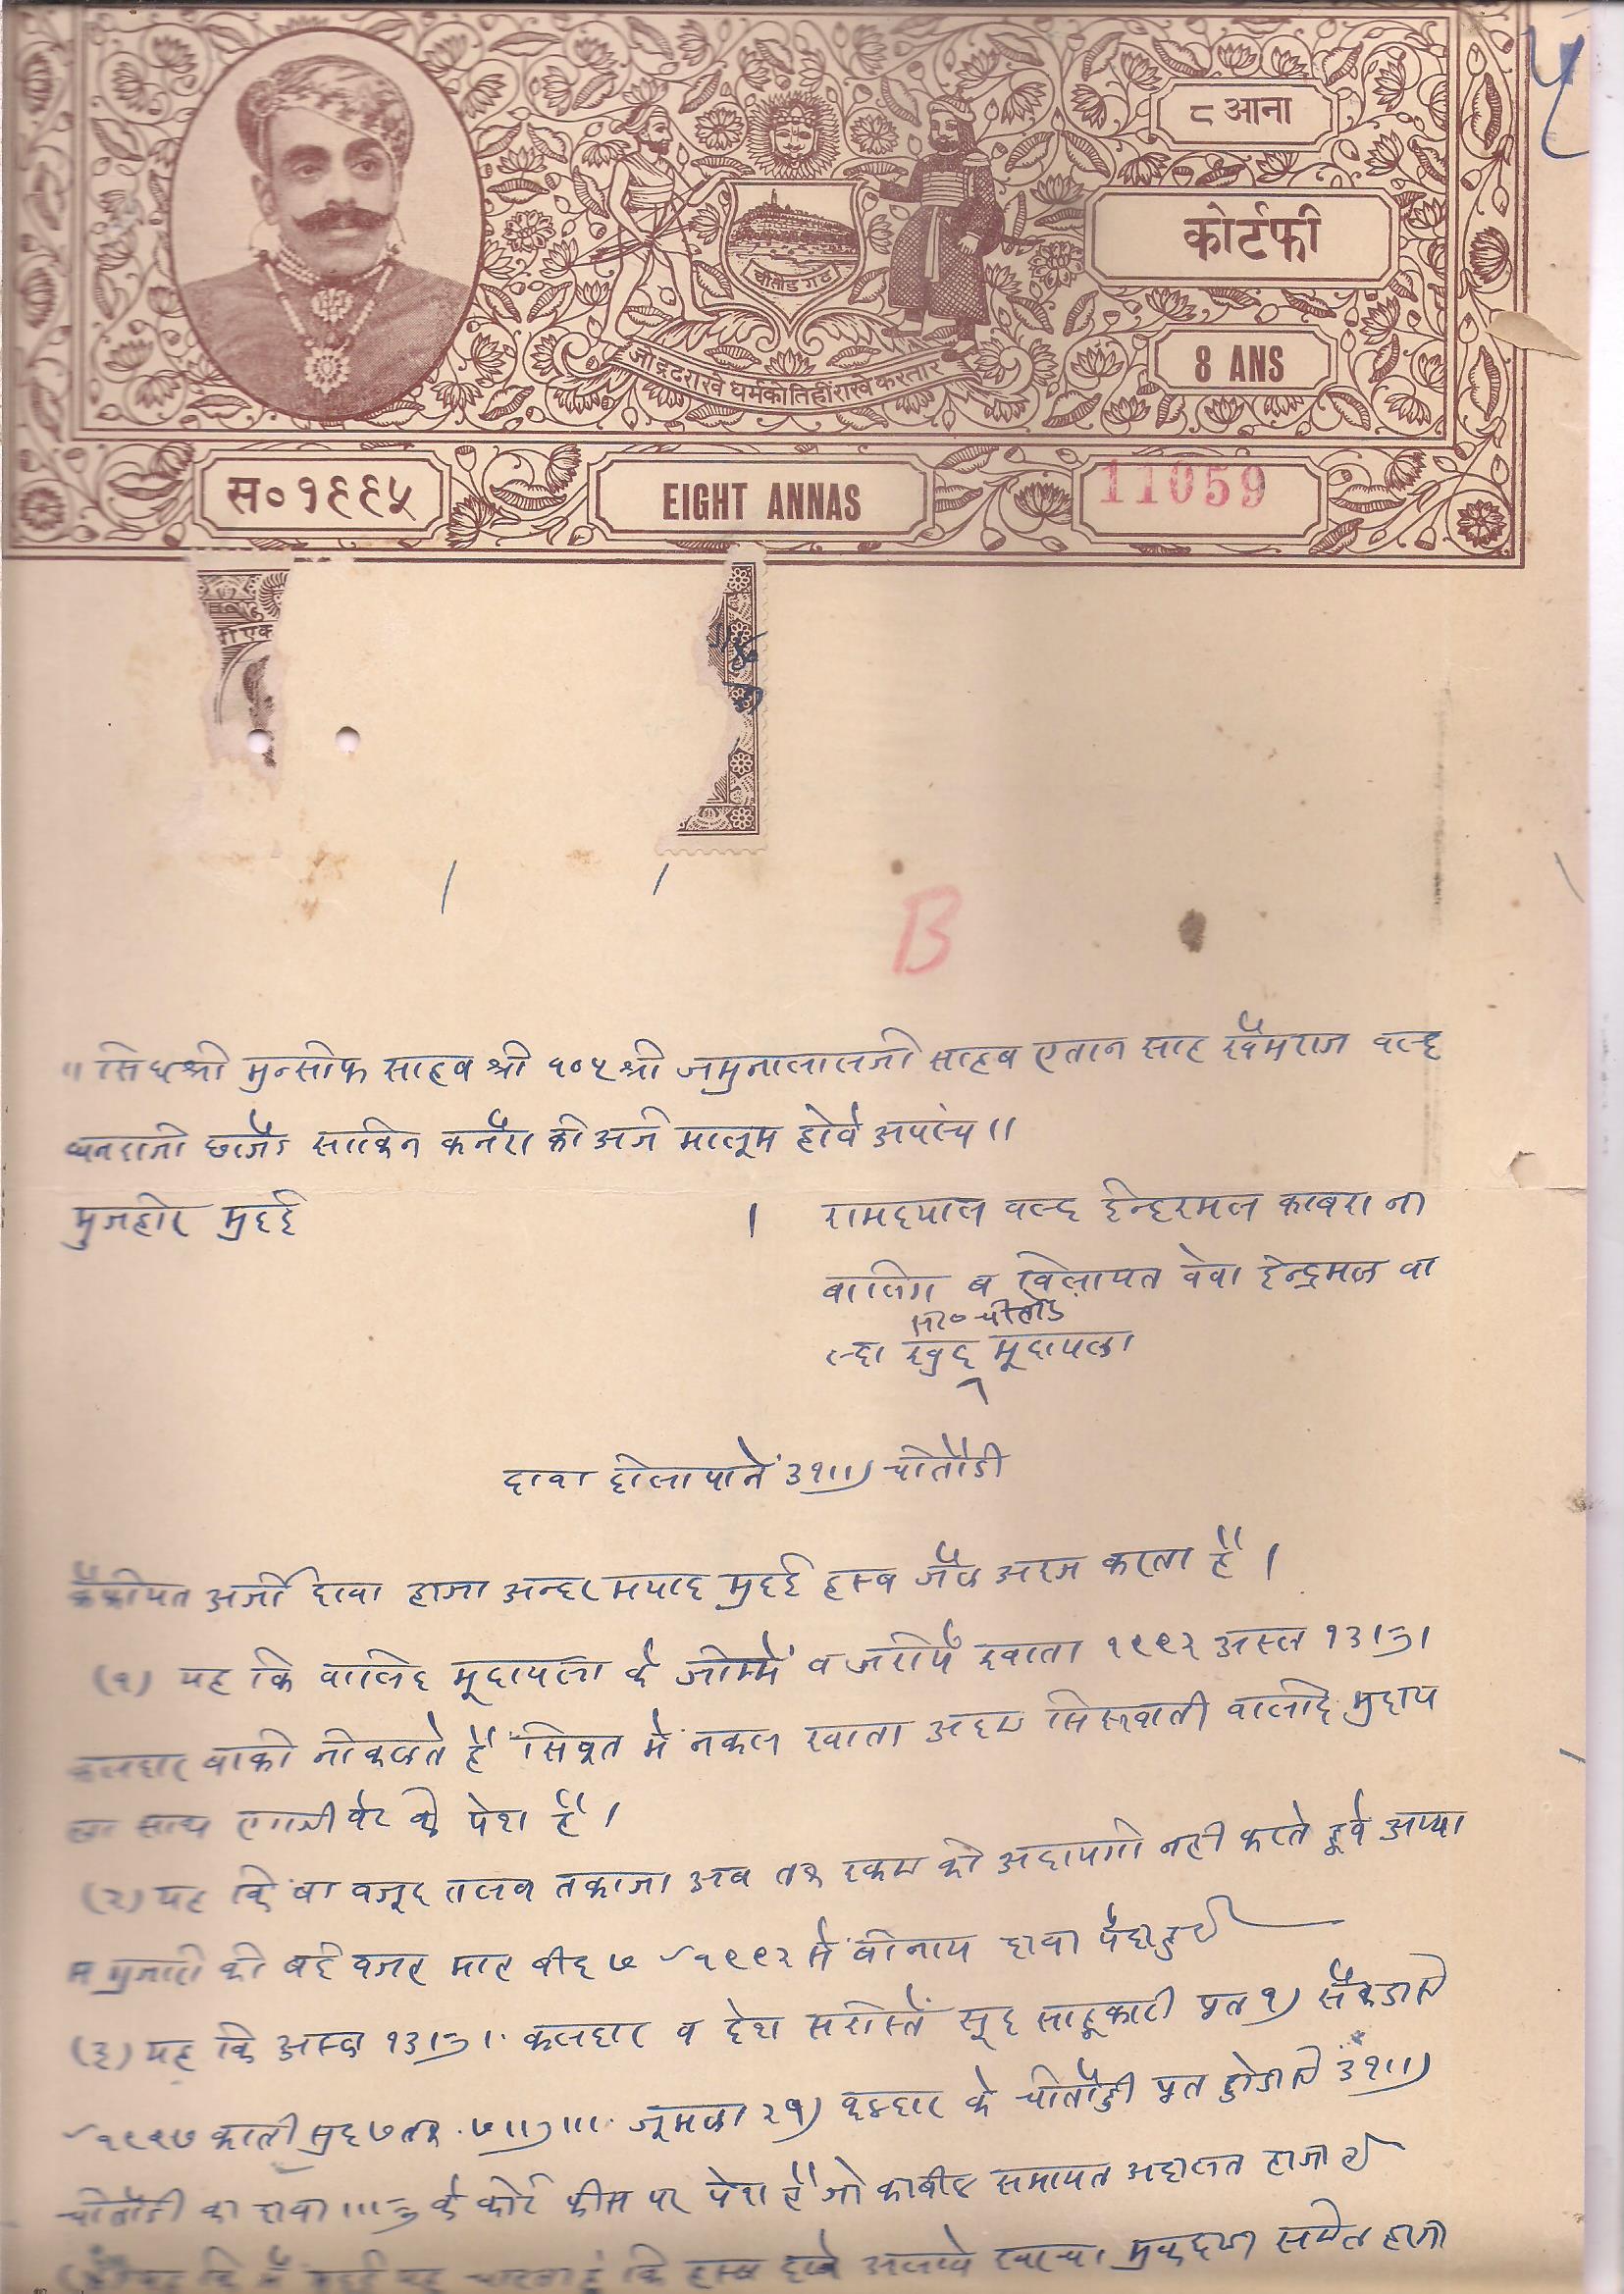 ५
८ आना
कोर्टफी
चीतोड गढ
जो द्रढ राखे धर्म को तिहीं राखे करतार
8 ANS
स० १९९५
EIGHT ANNAS
11059
ी एक
B
॥ सिधश्री मुन्सीफ साहब श्री १०५ श्री जमुनालालजी साहब एतान साह खेमराज वल्द
साकिन कनेरा की अर्ज मालूम होवे अपरंच ॥
मुजहीर मुद्दई । रामदयाल वल्द ईन्दरमल काबरा ना
बालिग ब विलायत बेवा इन्द्रमल वा
सा० चीतोड
ल्दा खुद मूदायला
दावा दीलापाने ३१॥) चीतौडी
कैफीयत अर्जी दावा हाजा अन्दर मयाद मुद्दई हस्ब जैल अरज करता है ।
(१) यह कि वालिद मूदायला के जीम्में ब जरीये खाता १९९२ अस्ल १३।
कलदार बाकी नीकलते है सिबूत में नकल खाता वालीदे मुदाय
ला साथ के पेश है ।
(२) यह कि बा वजूद तलब तकाजा अब तक रकम की अदायगी नही करते हूवे
की बई वजह माह बीद ७ १९९२ से बीनाय दावा पैदा हुई
(३) यह कि अस्ल १३। कलदार व देश सरीस्ते सूद साहूकारी १) सैकडा से
१९९७ काती सुद ७ तक जूमला २१) कलदार के चीतौडी ३१॥)
चीतौडी का दावा के कोर्ट फीस पर पेश है जो काबील समायत अदालत हाजा है
कि खरचा मुकदमा समेत हाजा